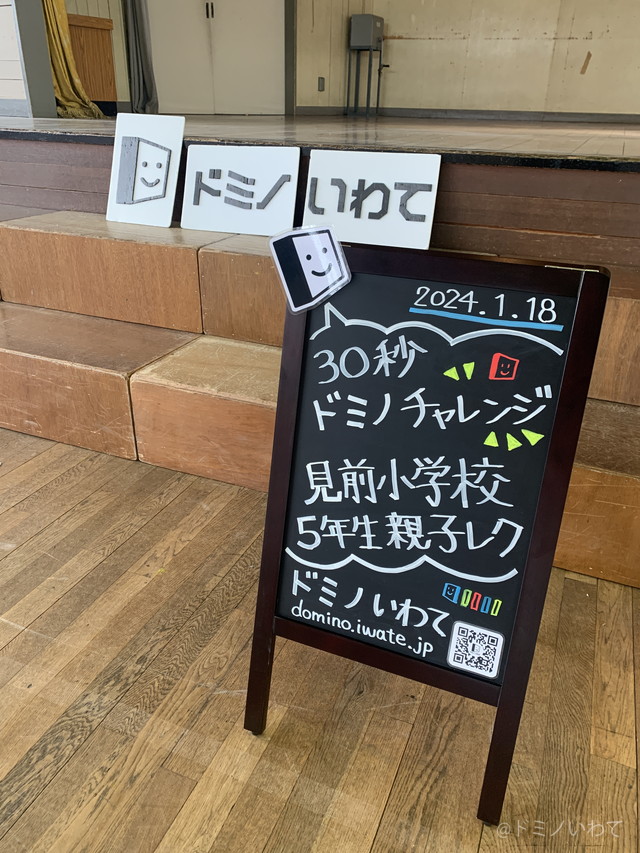 ドミノ
いわて
2024.1.18
30秒
ドミノチャレンジ
見前小学校
5年生親子レク
ドミノいわて
domino.iwate.jp
@ドミノいわて